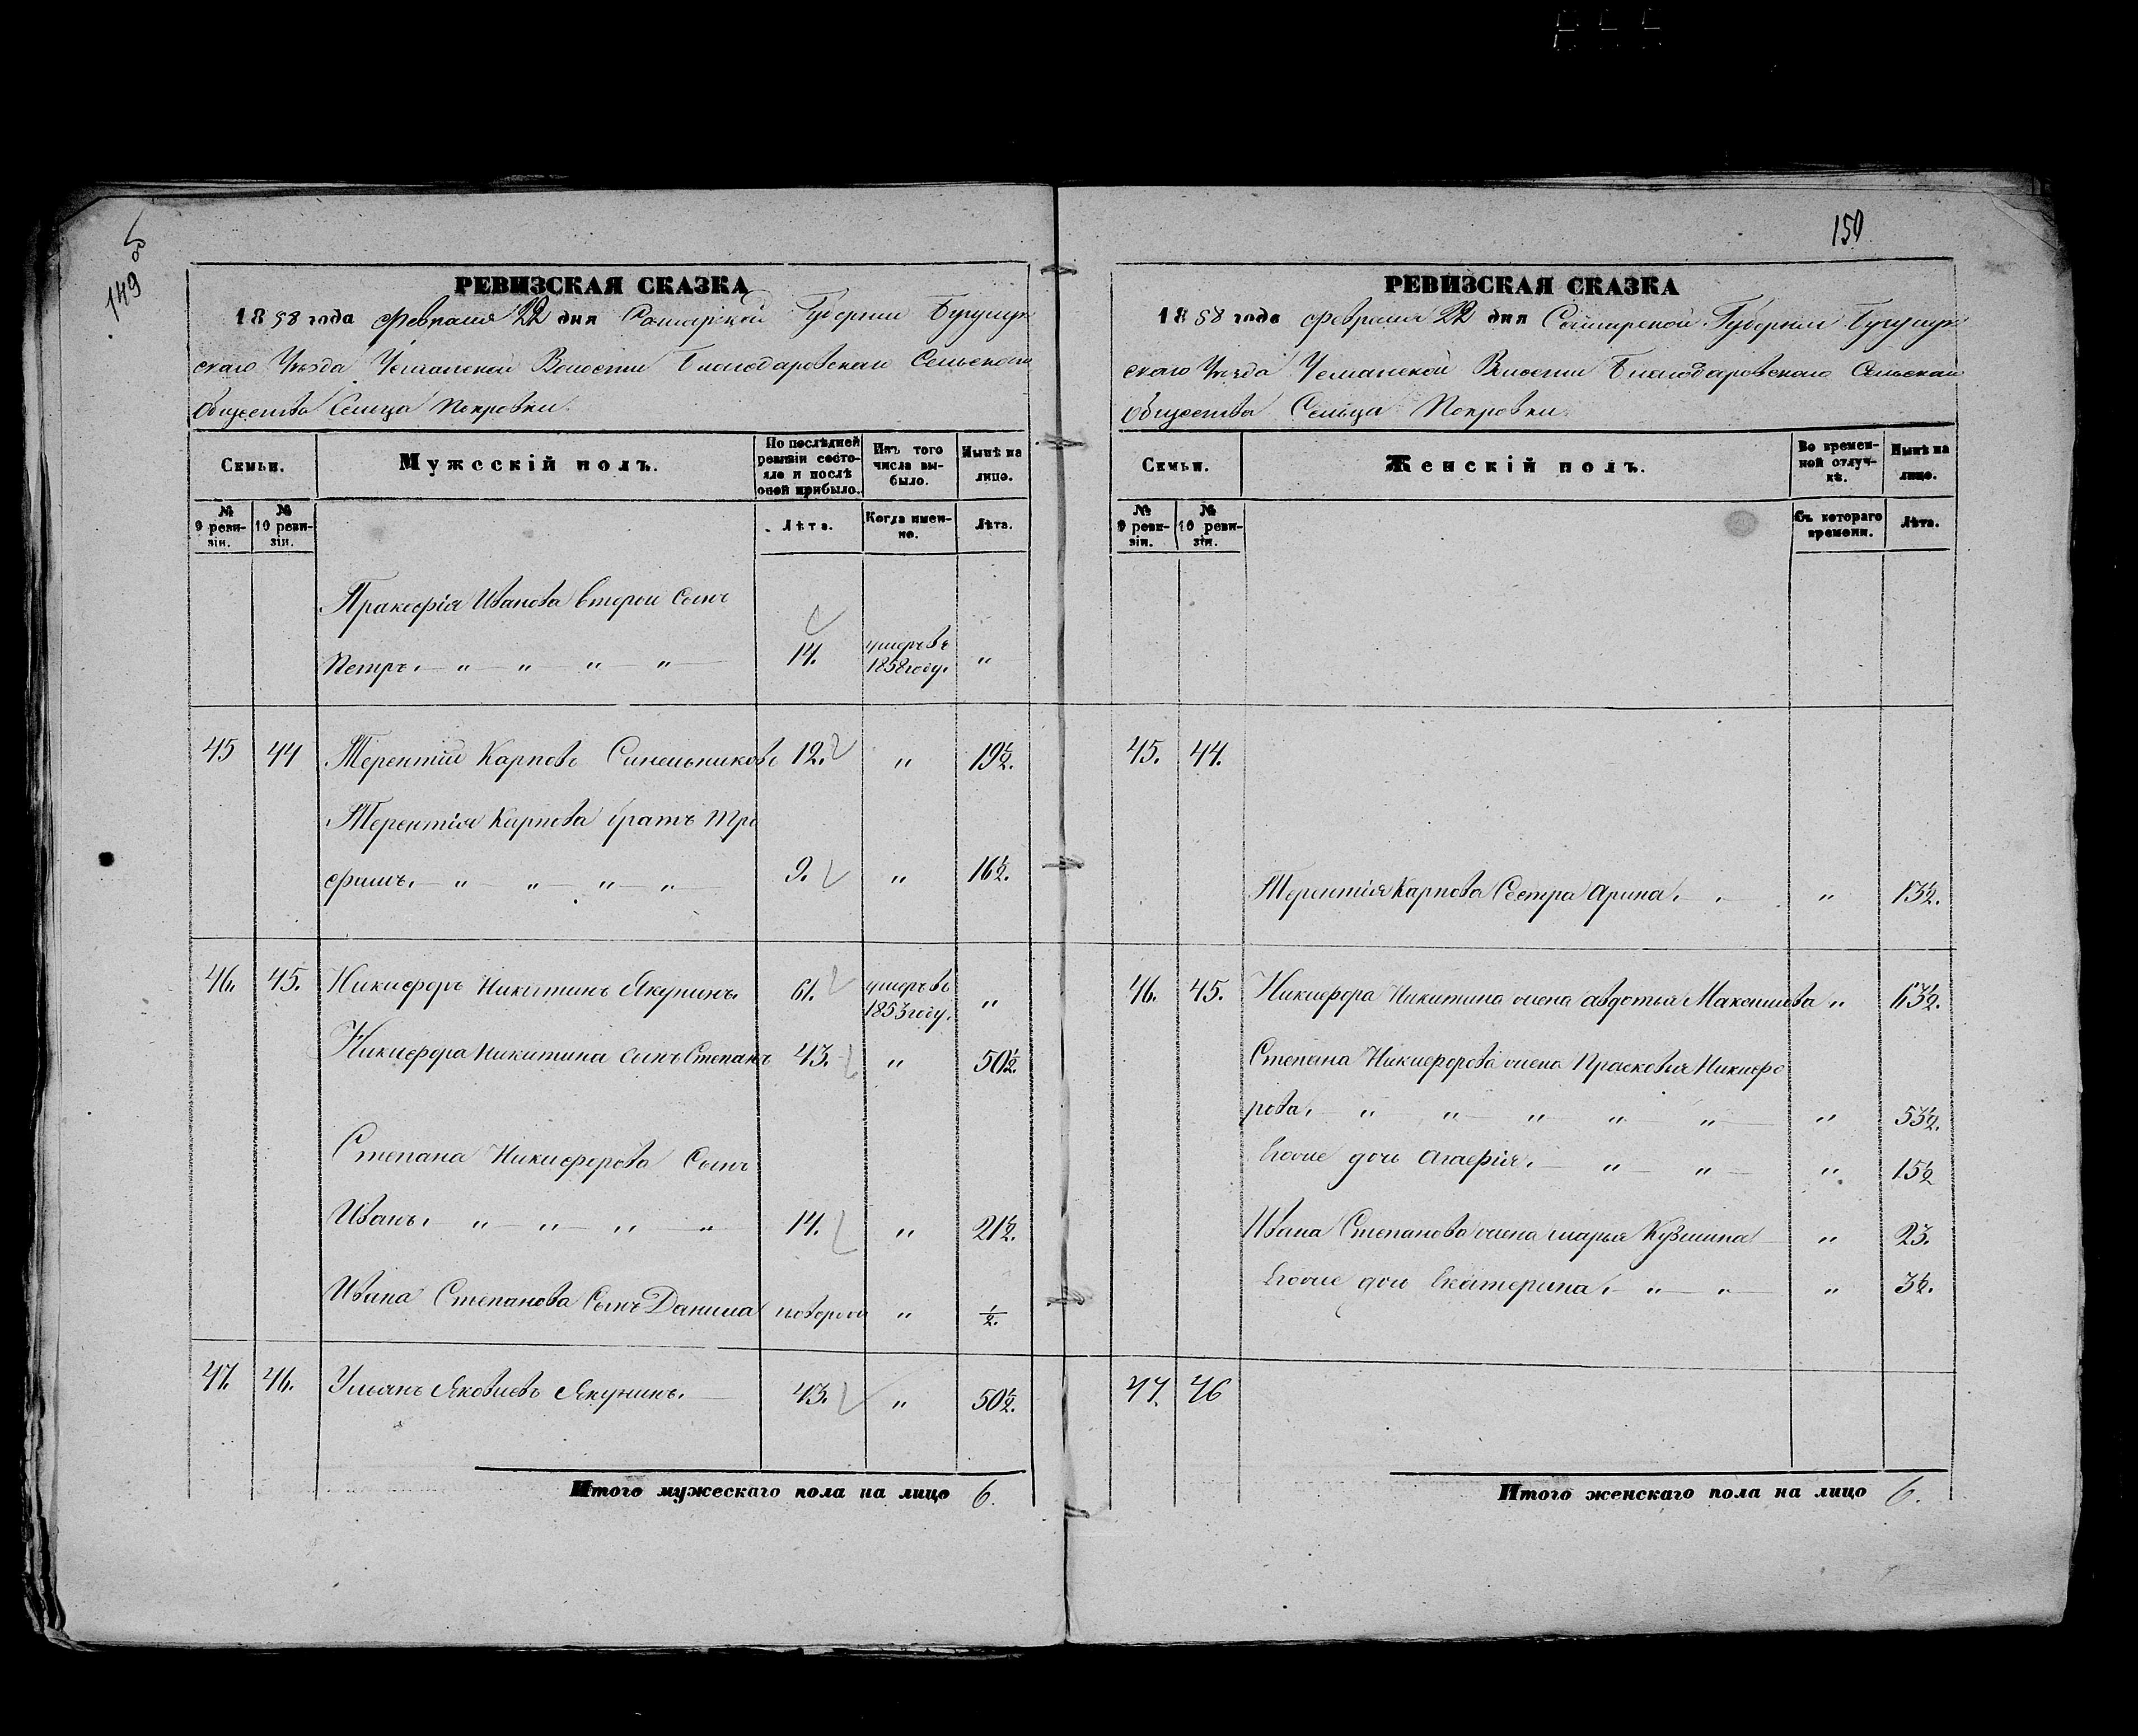 149
150
РЕВИЗСКАЯ СКАЗКА
1858 года Февраля 22 дня Самарской Губернии Бугурус
скаго Уезда Усманской Волости Благодаровскаго Сельскаго
Общества Сельца Покровки.
Семьи.
Мужескій полъ.
По послѣдней ревизіи состояло и послѣ оной прибыло.
Изъ того числа выбыло.
Нынѣ на лицо.
№ 9 ревизіи.
№ 10 ревизіи.
Лѣта.
Когда именно.
Лѣта.
Пракофія Иванова второй Сынъ
Петръ. — „ — „ — „ — „ — 14. умеръ въ 1858 году. „
45 44 Терентій Карповъ Синельниковъ 12. „ 19½.
Терентія Карпова братъ Тро
фимъ. — „ — „ — „ — „ — 9. „ 16½.
46. 45. Никифоръ Никитинъ Якунинъ. 61. умеръ въ 1853 году. „
Никифора Никитина сынъ Степанъ 43. „ 50½.
Степана Никифорова Сынъ
Иванъ. — „ — „ — „ — „ 14. „ 21½.
Ивана Степанова Сынъ Данила „ ½.
47. 46. Ульянъ Яковлевъ Якунинъ. — 43. „ 50½.
Итого мужескаго пола на лицо 6.
РЕВИЗСКАЯ СКАЗКА
1858 года Февраля 22 дня Самарской Губернии Бугурус
скаго Уезда Усманской Волости Благодаровскаго Сельскаго
Общества Сельца Покровки.
Семьи.
Женскій полъ.
Во временной отлучкѣ.
Нынѣ на лицо.
№ 9 ревизіи.
№ 10 ревизіи.
Съ котораго времени.
Лѣта.
45. 44.
Терентія Карпова Сестра Арина. — „ 13½.
46. 45. Никифора Никитина жена Авдотья Максимова „ 63½.
Степана Никифорова жена Прасковья Никифо
рова. — „ — „ — „ — „ — „ — „ 53½.
Ихъ дочь Агафія. — „ — „ — „ 15½
Ивана Степанова жена Марья Кузмина — „ 23.
Ихъ дочь Екатерина. — „ — „ — „ 3½.
47. 46
Итого женскаго пола на лицо 6.